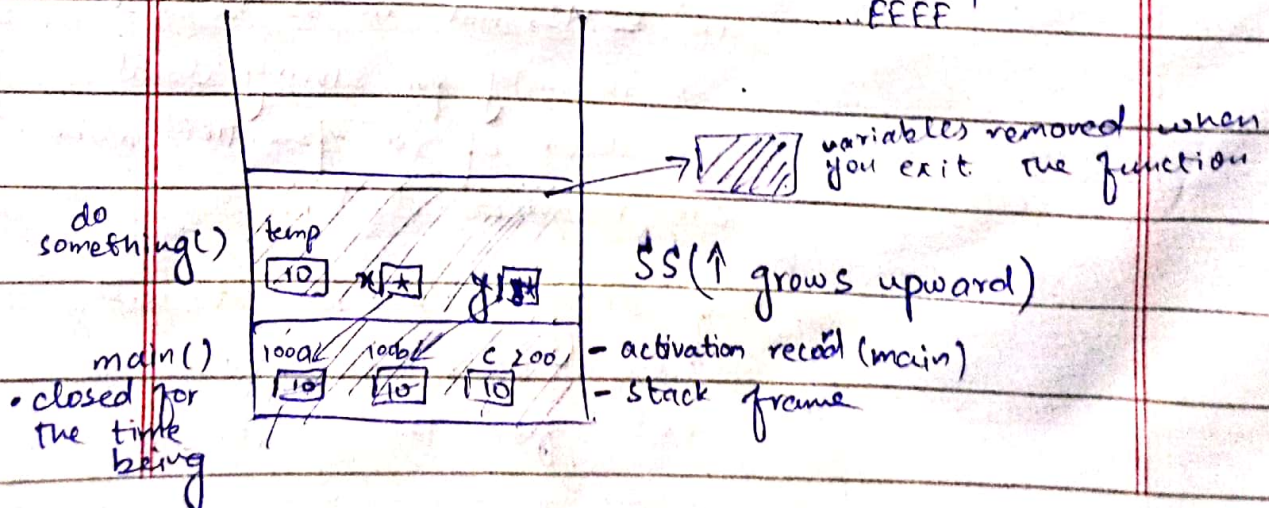 ...FFFF
variables removed when
you exit the function
do
something()
temp
10
x *
y *
SS(↑ grows upward)
main()
100a
100b
c 200
10
10
10
- activation record (main)
- stack frame
• closed for
the time
being